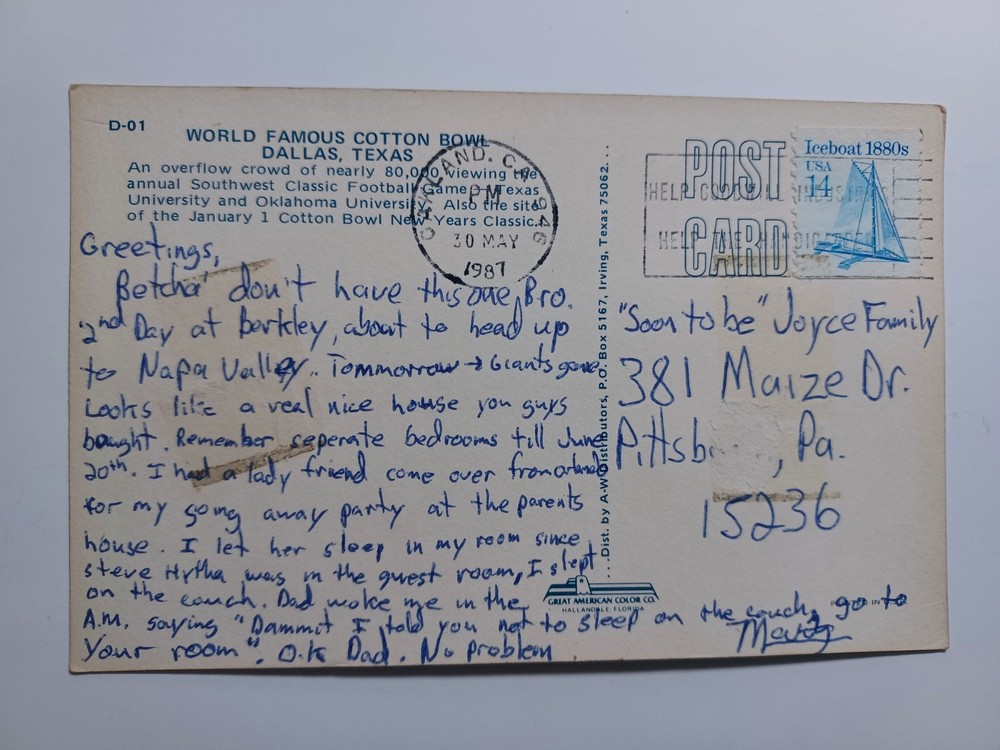 D-01
WORLD FAMOUS COTTON BOWL
DALLAS, TEXAS
An overflow crowd of nearly 80,000 viewing the
annual Southwest Classic Football Game of Texas
University and Oklahoma University. Also the site
of the January 1 Cotton Bowl New Years Classic.
OAKLAND, CA 946
PM
30 MAY
1987
POST
CARD
HELP GOODWILL INDUSTRIES
HELP THE HANDICAPPED
Iceboat 1880s
USA
14
Greetings,
Betcha' don't have this one Bro.
2nd Day at Berkley, about to head up
to Napa Valley.. Tommorrow → Giants game
Looks like a real nice house you guys
bought. Remember seperate bedrooms till June
20th. I had a lady friend come over from orlando
for my going away party at the parents
house. I let her sleep in my room since
steve Hytha was in the guest room, I slept
on the couch. Dad woke me in the
A.M. saying "Dammit I told you not to sleep on the couch, go to
Your room". O.K Dad. No problem
Marty
...Dist. by A-W Distributors, P.O. Box 5167, Irving, Texas 75062...
"Soon to be" Joyce Family
381 Maize Dr.
Pittsb , Pa.
15236
GREAT AMERICAN COLOR CO.
HALLANDALE, FLORIDA